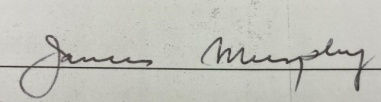 James Murphy